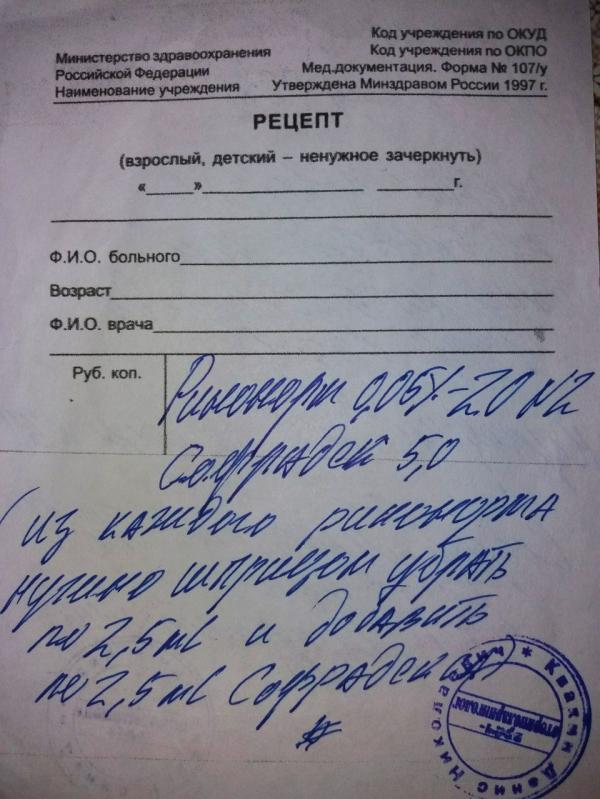 Министерство здравоохранения
Российской Федерации
Наименование учреждения
Код учреждения по ОКУД
Код учреждения по ОКПО
Мед.документация. Форма № 107/у
Утверждена Минздравом России 1997 г.
РЕЦЕПТ
(взрослый, детский – ненужное зачеркнуть)
«_____»____________________ _________г.
Ф.И.О. больного
Возраст
Ф.И.О. врача
Руб. коп.
Ринонорм 0,05%-20 №2
Софрадекс 5,0
(из каждого ринонорма
нужно шприцом убрать
по 2,5 ml и добавить
по 2,5 ml Софрадекса)
* Квазин Денис Николаевич
врач-
оториноларинголог